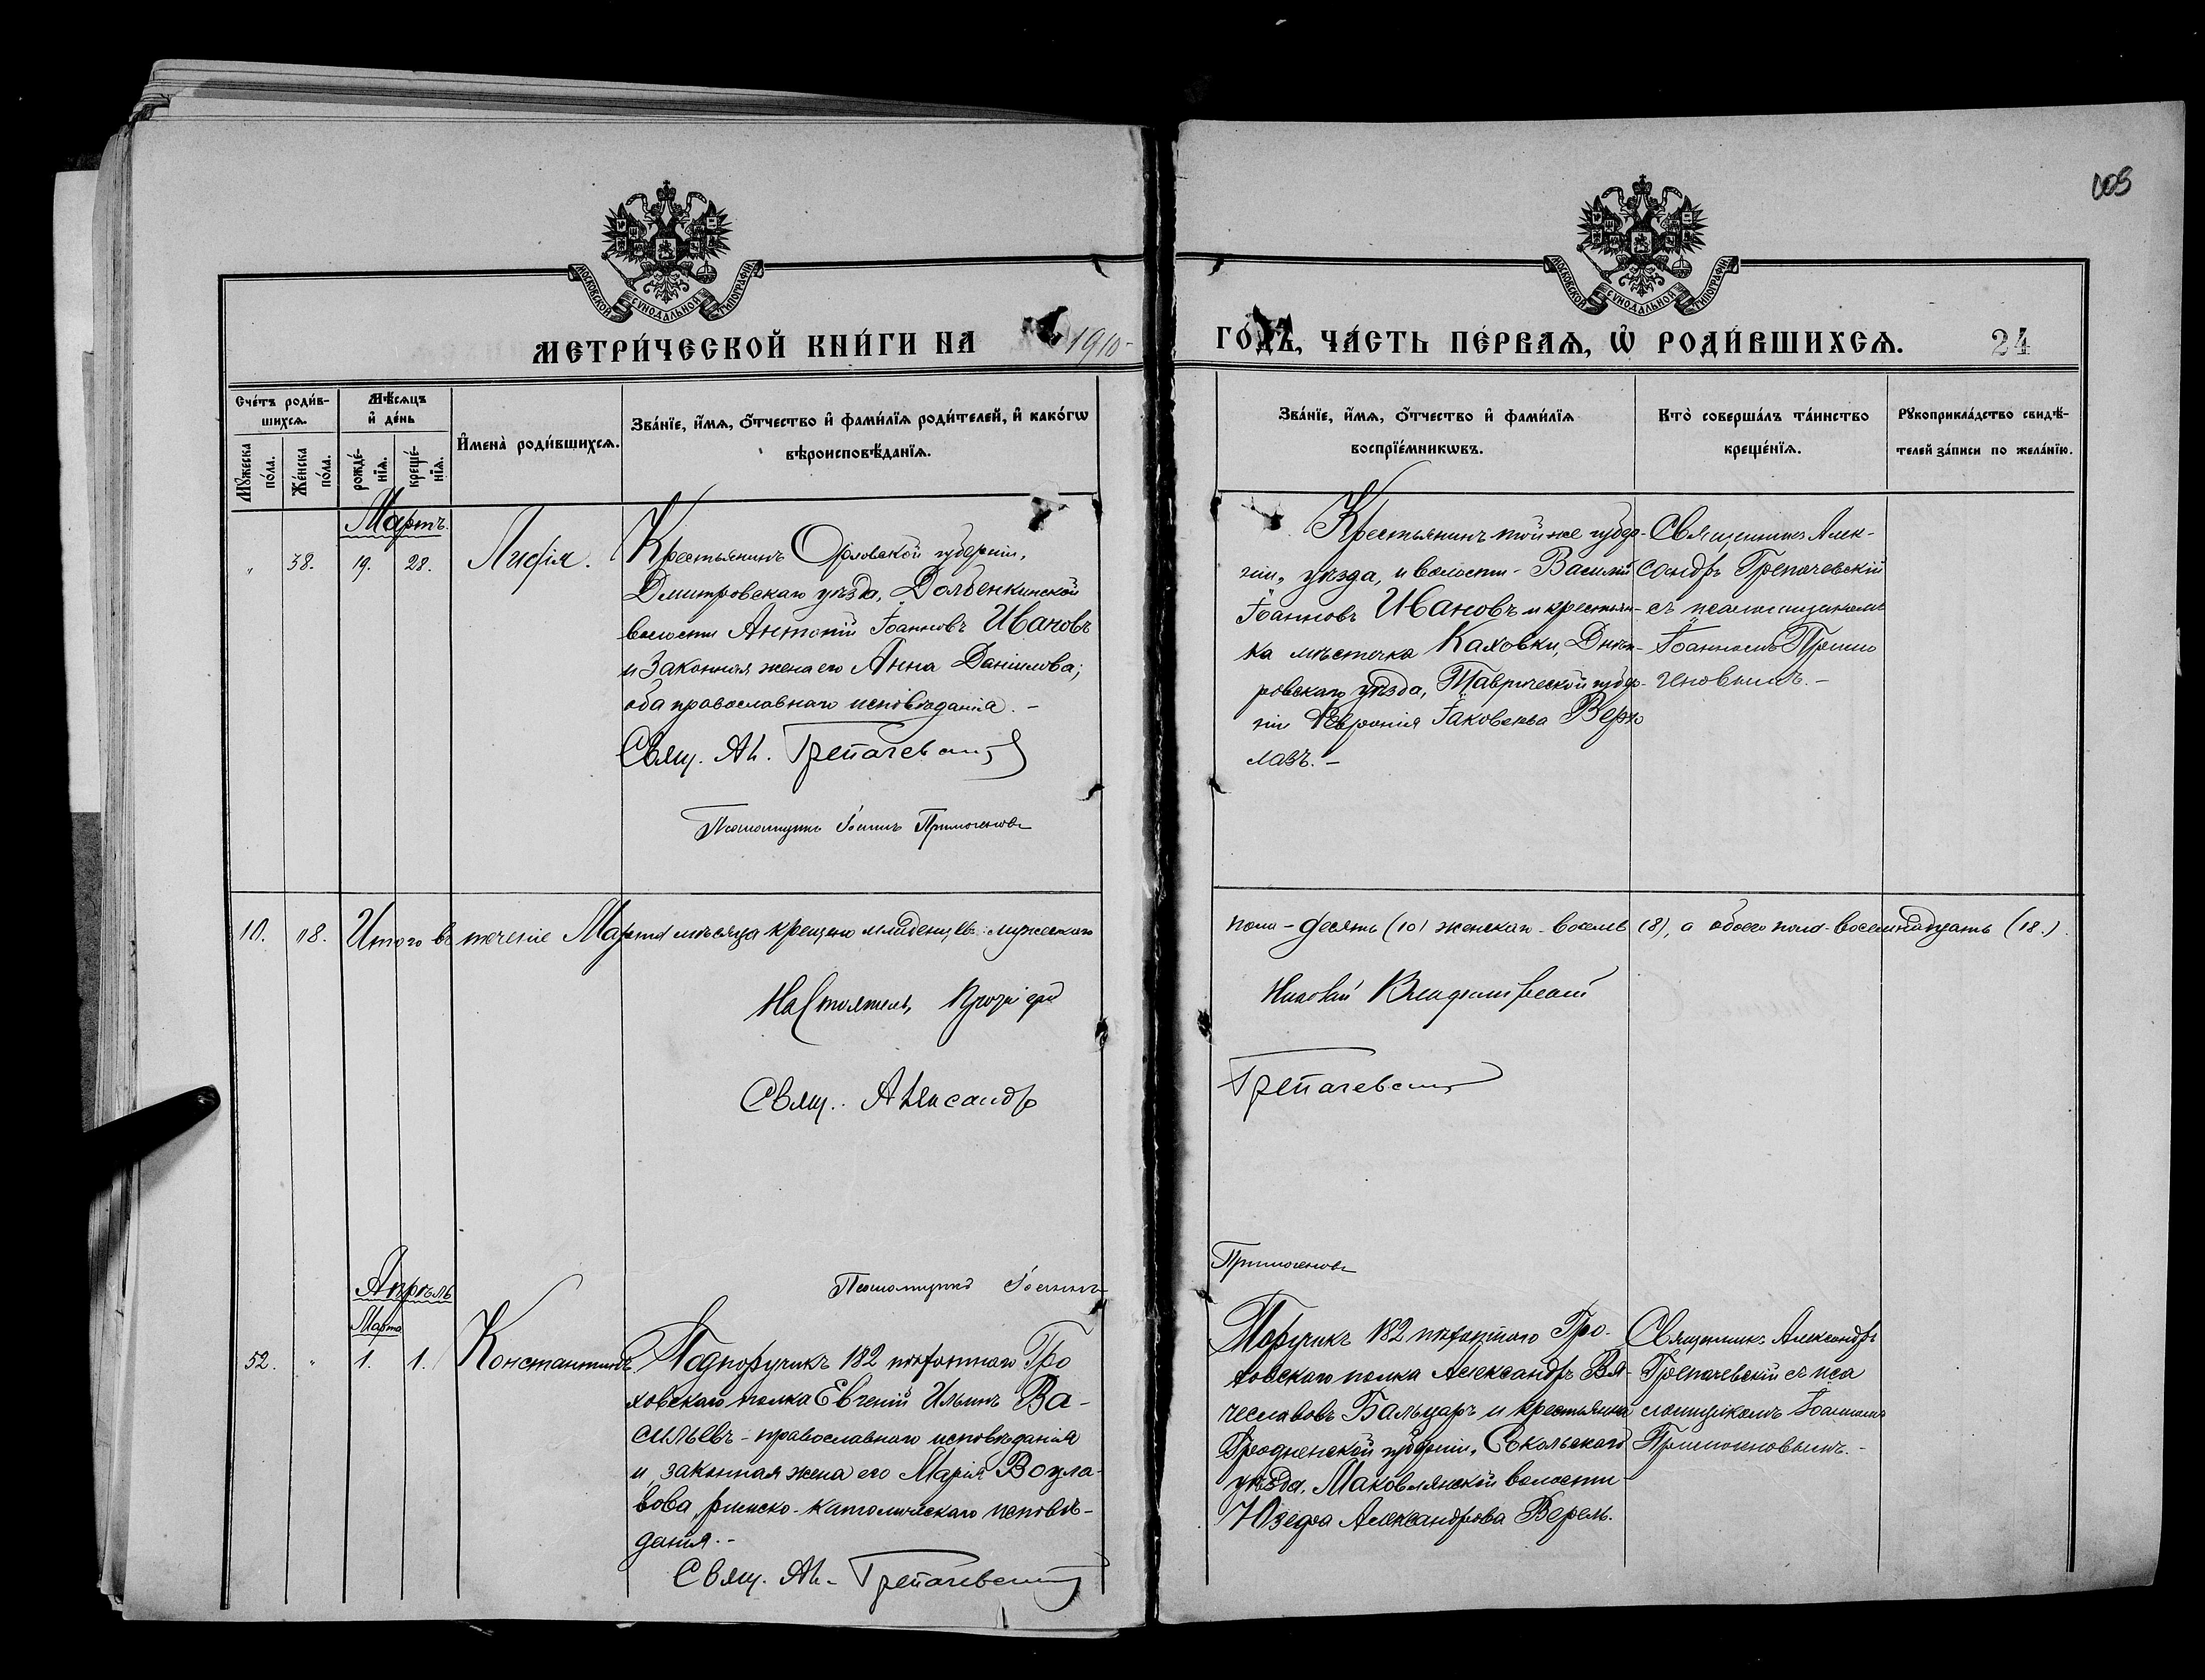 103
МОСКОВСКОЙ СѴНОДАЛЬНОЙ ТИПОГРАФІИ
МОСКОВСКОЙ СѴНОДАЛЬНОЙ ТИПОГРАФІИ
МЕТРИ́ЧЕСКОЙ КНИ́ГИ НА 1910
ГО́ДЪ, ЧА́СТЬ ПЕ́РВАѦ, Ѡ҆ РОДИ́ВШИХСѦ. 24
Сче́тъ роди́в-
шихсѧ.
Мꙋ́жеска по́ла.
Же́нска по́ла.
Мѣ́сѧцъ
и҆ де́нь
рожде́-
нїѧ.
креще́-
нїѧ.
И҆мена̀ роди́вшихсѧ.
Зва́нїе, и҆́мѧ, ѻ҆́тчество и҆ фами́лїѧ роди́телей, и҆ како́гѡ
вѣроисповѣ́данїѧ.
Зва́нїе, и҆́мѧ, ѻ҆́тчество и҆ фами́лїѧ
воспрїе́мникѡвъ.
Кто̀ соверша́лъ та́инство
креще́нїѧ.
Рꙋкоприкла́дство свидѣ́-
телей за́писи по жела́нїю.
Мартъ.
" 38. 19. 28. Лидія.
Крестьянинъ Орловской губерніи,
Дмитровскаго уѣзда, Долбенкинской
волости Антоній Іоанновъ Ивановъ
и законная жена его Анна Даніилова;
оба православнаго исповѣданія. -
Свящ. Ал. Трепачевскій
Псаломщикъ Іоаннъ
Крестьянинъ той же губер-
ніи, уѣзда, и волости - Василій
Іоанновъ Ивановъ и крестьян-
ка мѣстечка Каховки, Днѣп-
ровскаго уѣзда, Таврической губер-
ніи Іаковлева Верх
лазъ. -
Священникъ Алек-
сандръ Трепачевскій
съ псаломщикомъ
Іоанномъ
10. "8. Итого въ теченіе Марта мѣсяца крещено младенцевъ: мужескаго
пола - десять (10) женскаго - восемь (8), а обоего пола - восемнадцать (18.).
Настоятель, Протоіерей
Николай
Свящ. Александръ
Трепачевскій
Псаломщикъ Іоаннъ
Апрѣль
Марта
52. " 1. 1. Константинъ.
Подпоручикъ 182 пѣхотнаго Гро
ховскаго полка Евгеній Ильинъ Ва-
сильевъ - православнаго исповѣданія
и законная жена его Марія
римско-католическаго исповѣ-
данія. -
Свящ. Ал. Трепачевскій
Поручикъ 182 пѣхотнаго Гро-
ховскаго полка Александръ Вя-
чеславовъ Бальцаръ и крестьянка
Гродненской губерніи, Сокольскаго
уѣзда, Маковлянской волости
Юзефа Александрова Верель.
Священникъ Александръ
Трепачевскій съ пса
ломщикомъ Іоанномъ